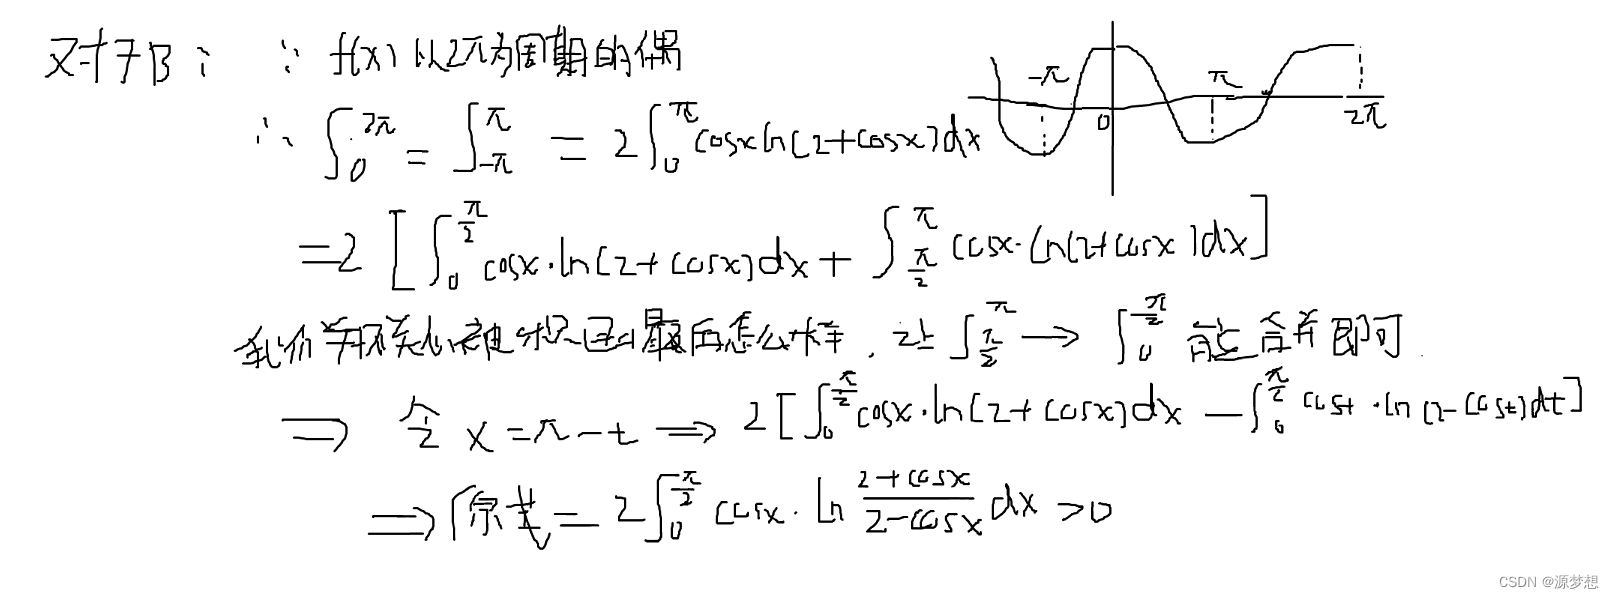 对于B： ∵ f(x) 以2π为周期的偶
∴ ∫₀^{2π} = ∫_{-π}^{π} = 2∫₀^{π} cosx ln(2+cosx)dx
-π 0 π 2π
=2 [∫₀^{π/2} cosx·ln(2+cosx)dx + ∫_{π/2}^{π} cosx·ln(2+cosx)dx]
我们并不关心被积函数最后怎么样，让 ∫_{π/2}^{π} → ∫₀^{π/2} 能合并即可.
⇒ 令 x=π-t ⇒ 2[∫₀^{π/2} cosx·ln(2+cosx)dx - ∫₀^{π/2} cost·ln(2-cost)dt]
⇒ 原式 = 2∫₀^{π/2} cosx·ln \frac{2+cosx}{2-cosx} dx >0
CSDN @源梦想